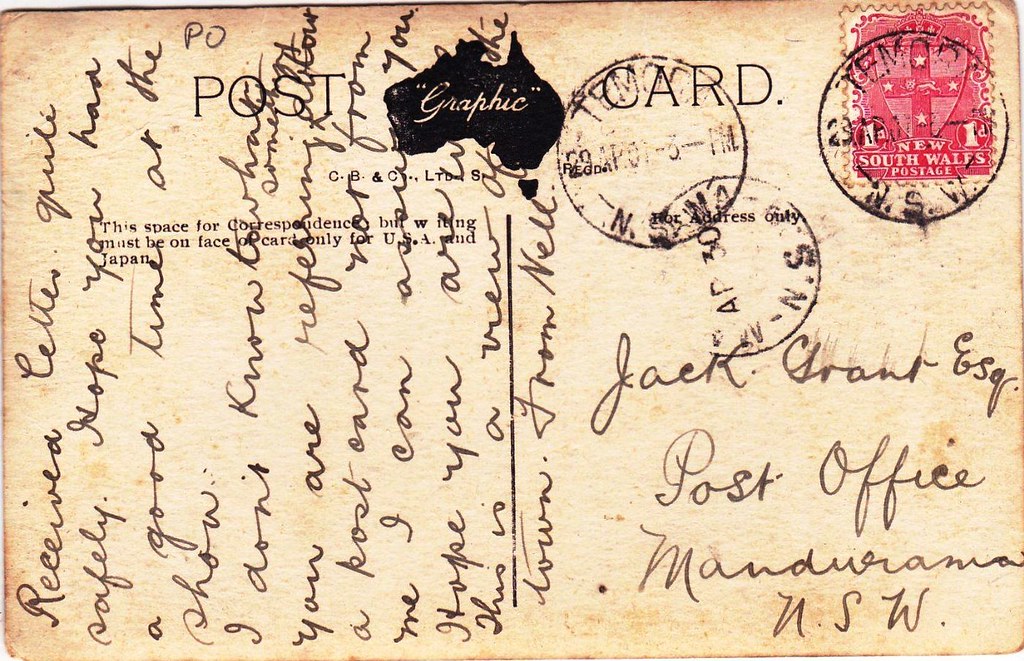 PO
POST CARD.
"Graphic"
C. B. & Co., Ltd., S.
REGD.
This space for Correspondence, but writing
must be on face of card only for U.S.A. and
Japan.
For Address only.
Received letter quite
safely. Hope you had
a good time at the
show.
I don't know what
you are referring to
a post card not from
me I can assure you
Hope you are
This is a view of the
town. From Nell.
Jack. Grant Esq.
Post Office
Mandurama
N.S.W.
TEMORA
3-PM
N.S.W
AP 30
N.S.W
TEMORA
N.S.W
1d 1d
NEW
SOUTH WALES
POSTAGE